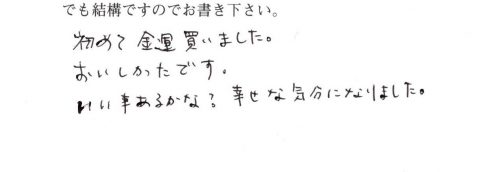 でも結構ですのでお書き下さい。
初めて金運買いました。
おいしかったです。
いい事あるかな？幸せな気分になりました。